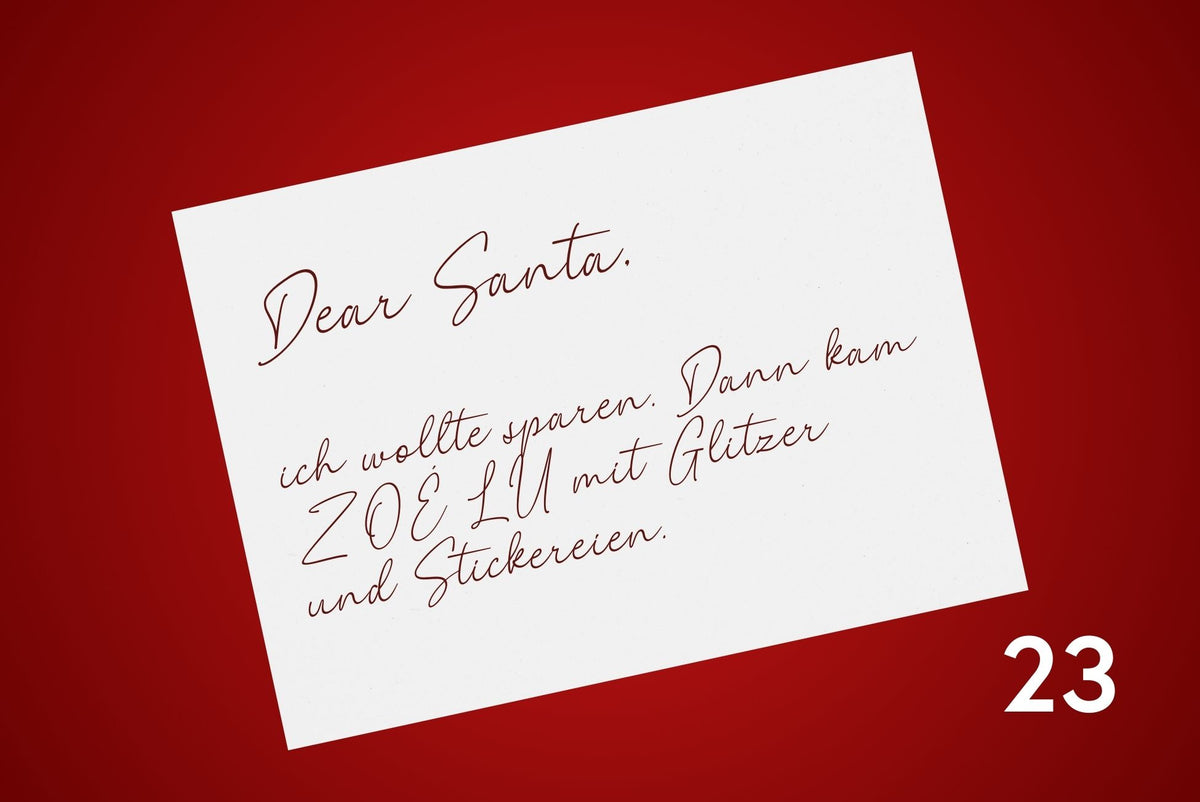 Dear Santa,
ich wollte sparen. Dann kam
ZOÉ LU mit Glitzer
und Stickereien.
23